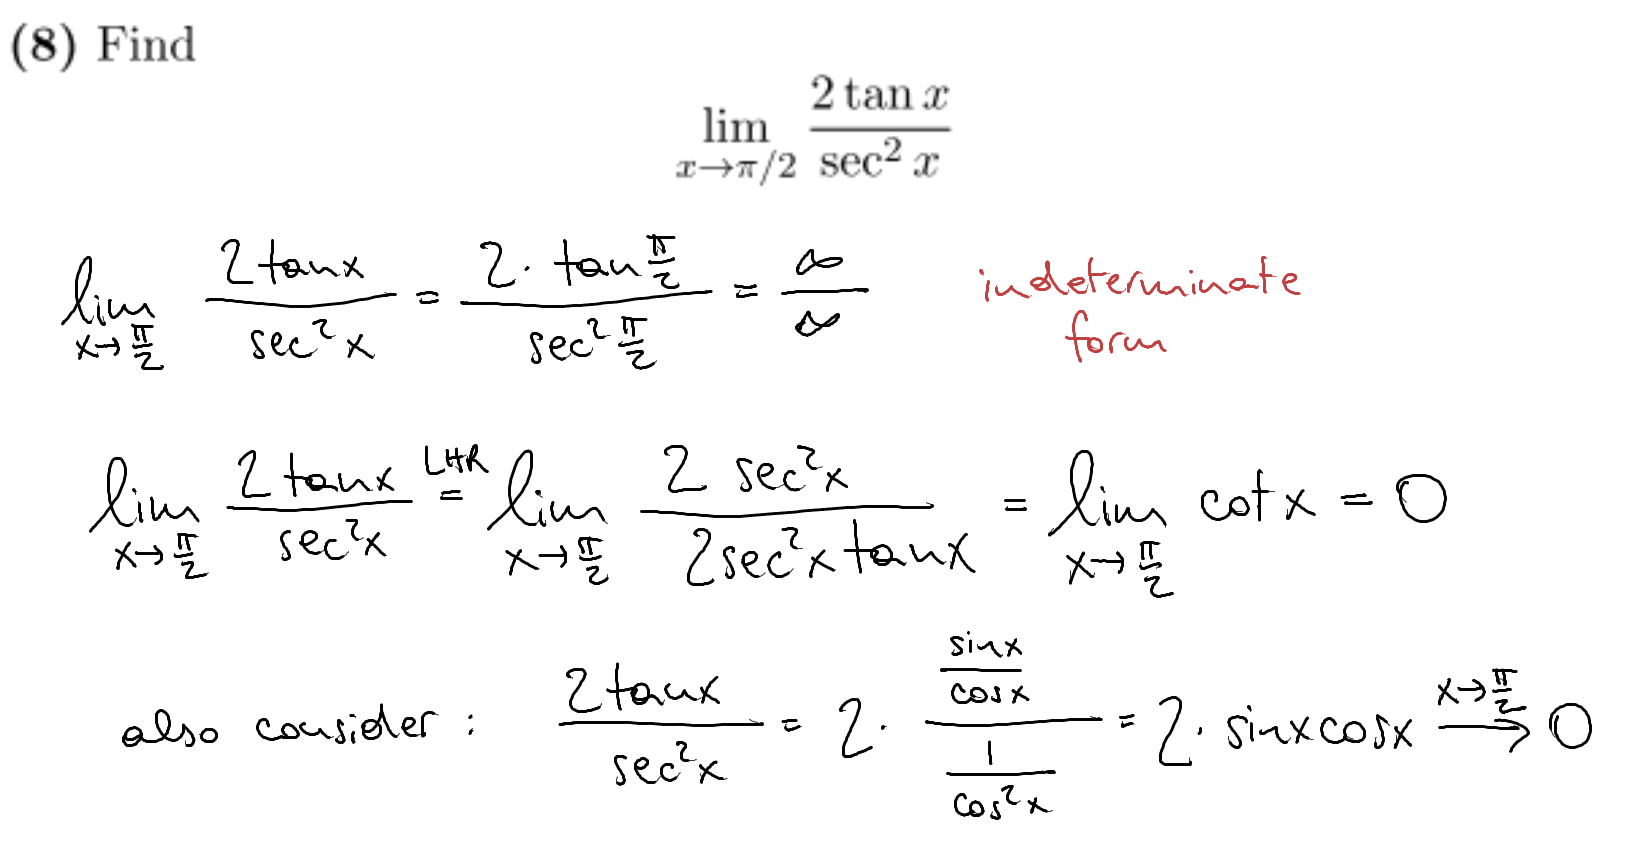 (8) Find
lim_{x→π/2} \frac{2 tan x}{sec² x}
lim_{x→\frac{π}{2}} \frac{2 tan x}{sec² x} = \frac{2 · tan \frac{π}{2}}{sec² \frac{π}{2}} = \frac{∞}{∞} indeterminate form
lim_{x→\frac{π}{2}} \frac{2 tan x}{sec² x} \overset{LHR}{=} lim_{x→\frac{π}{2}} \frac{2 sec² x}{2 sec² x tan x} = lim_{x→\frac{π}{2}} cot x = 0
also consider : \frac{2 tan x}{sec² x} = 2 · \frac{\frac{sin x}{cos x}}{\frac{1}{cos² x}} = 2 · sin x cos x \xrightarrow{x→\frac{π}{2}} 0